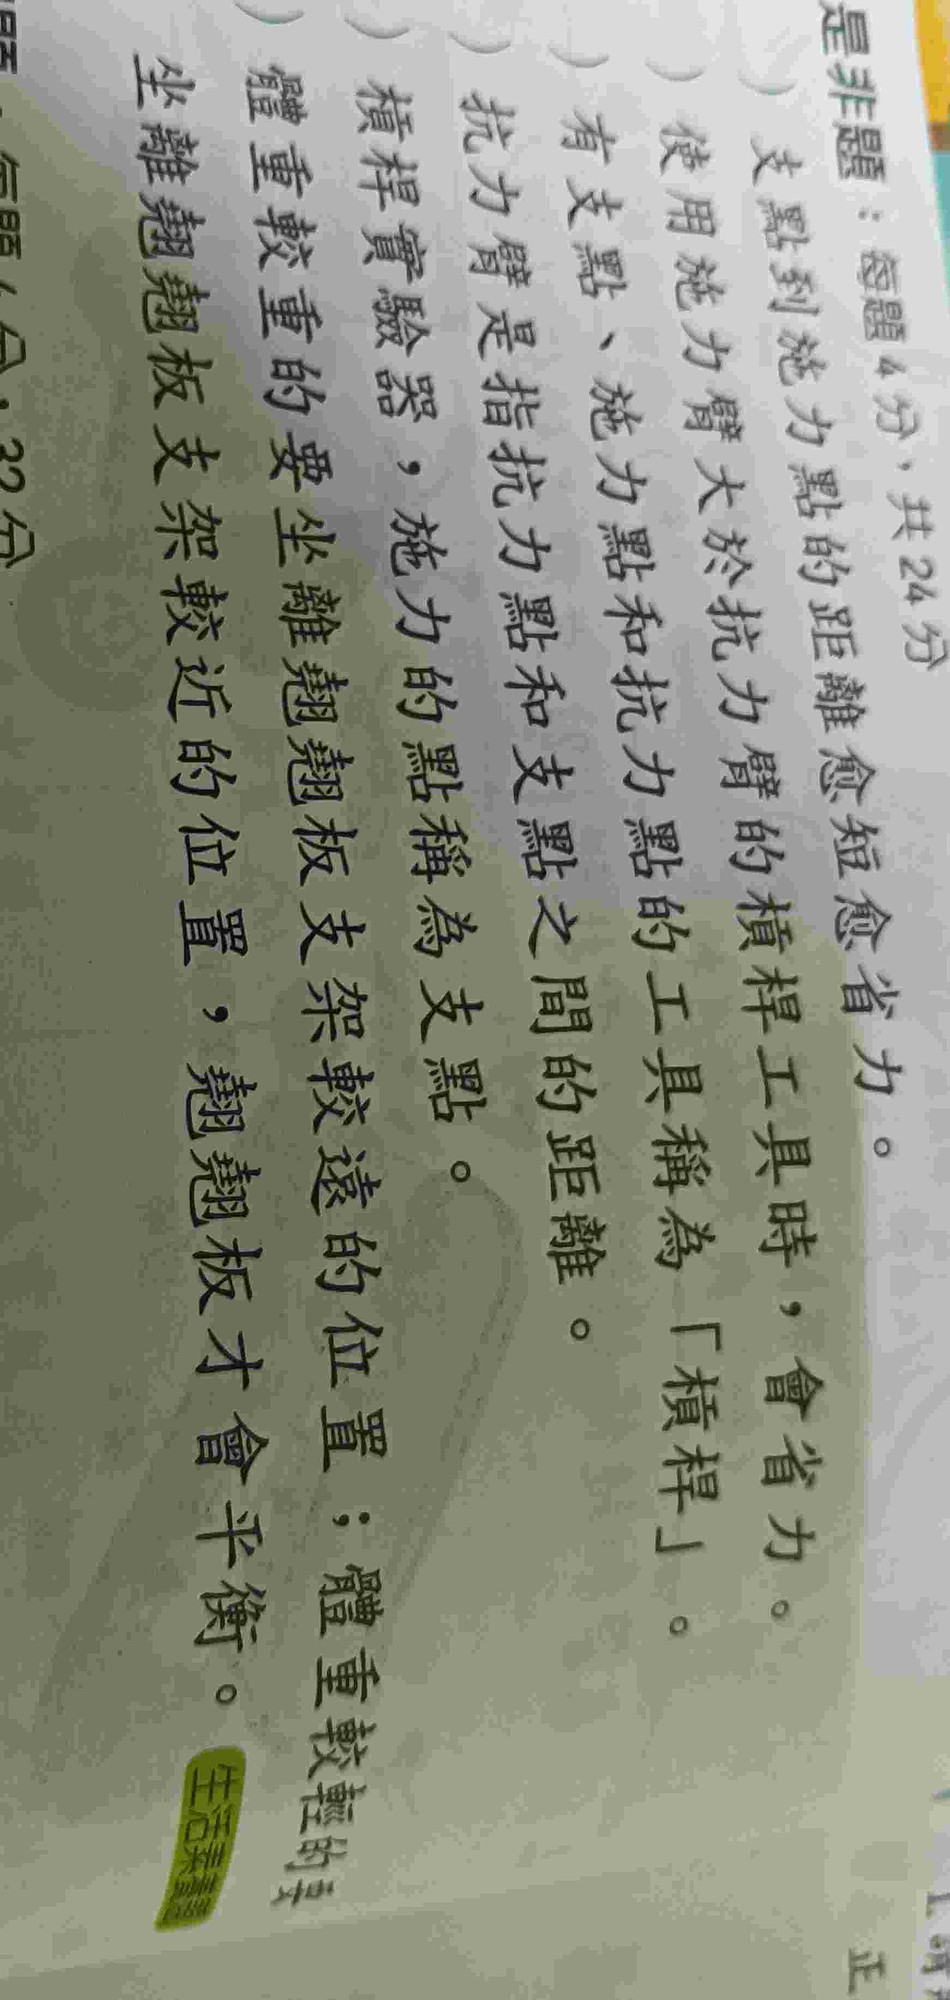 是非題：每題4分，共24分
）支點到施力點的距離愈短愈省力。
）使用施力臂大於抗力臂的槓桿工具時，會省力。
）有支點、施力點和抗力點的工具稱為「槓桿」。
）抗力臂是指抗力點和支點之間的距離。
）槓桿實驗器，施力的點稱為支點。
）體重較重的要坐離翹翹板支架較遠的位置；體重較輕的要
坐離翹翹板支架較近的位置，翹翹板才會平衡。生活素養
題：每題4分，32分
正